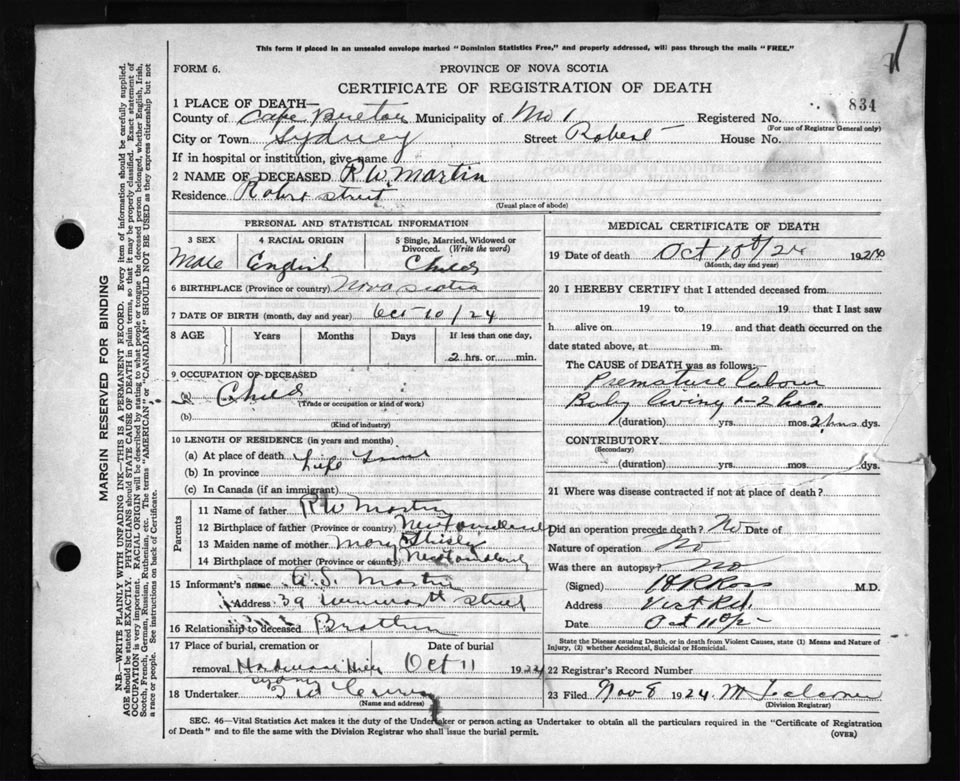 This form if placed in an unsealed envelope marked "Dominion Statistics Free," and properly addressed, will pass through the mails "FREE."
FORM 6.
PROVINCE OF NOVA SCOTIA
CERTIFICATE OF REGISTRATION OF DEATH
834
1 PLACE OF DEATH—
County of Cape Breton Municipality of No 1 Registered No.
(For use of Registrar General only)
City or Town Sydney Street Robert House No.
If in hospital or institution, give name
2 NAME OF DECEASED R W. Martin
Residence Robert Street
(Usual place of abode)
PERSONAL AND STATISTICAL INFORMATION
3 SEX 4 RACIAL ORIGIN 5 Single, Married, Widowed or Divorced. (Write the word)
Male English Child
6 BIRTHPLACE (Province or country) Nova Scotia
7 DATE OF BIRTH (month, day and year) Oct 10/24
8 AGE Years Months Days If less than one day,
2 hrs. or min.
9 OCCUPATION OF DECEASED
(a) Child
(Trade or occupation or kind of work)
(b)
(Kind of industry)
10 LENGTH OF RESIDENCE (in years and months)
(a) At place of death Life Time
(b) In province
(c) In Canada (if an immigrant)
Parents
11 Name of father R W Martin
12 Birthplace of father (Province or country) Newfoundland
13 Maiden name of mother Mary
14 Birthplace of mother (Province or country) Newfoundland
15 Informant's name S. Martin
Address 39 street
16 Relationship to deceased Brother
17 Place of burial, cremation or removal Date of burial
Hardwood Hill Oct 11 1924
Sydney
18 Undertaker
(Name and address)
MEDICAL CERTIFICATE OF DEATH
19 Date of death Oct 10th/24 192
(Month, day and year)
20 I HEREBY CERTIFY that I attended deceased from
19 to 19 that I last saw
h alive on 19 and that death occurred on the
date stated above, at m.
The CAUSE OF DEATH was as follows:
Premature Labour
Baby living 1-2 hrs.
(duration) yrs. mos. 2 hrs dys.
CONTRIBUTORY
(Secondary)
(duration) yrs. mos. dys.
21 Where was disease contracted if not at place of death?
Did an operation precede death? No Date of
Nature of operation No
Was there an autopsy? No
(Signed) H R Ross M.D.
Address
Date Oct 11th
State the Disease causing Death, or in death from Violent Causes, state (1) Means and Nature of Injury, (2) whether Accidental, Suicidal or Homicidal.
22 Registrar's Record Number
23 Filed Nov 8 1924
(Division Registrar)
SEC. 46—Vital Statistics Act makes it the duty of the Undertaker or person acting as Undertaker to obtain all the particulars required in the "Certificate of Registration
of Death" and to file the same with the Division Registrar who shall issue the burial permit.
(OVER)
MARGIN RESERVED FOR BINDING
N.B.—WRITE PLAINLY WITH UNFADING INK—THIS IS A PERMANENT RECORD. Every item of information should be carefully supplied.
AGE should be stated EXACTLY. PHYSICIANS should STATE CAUSE OF DEATH in plain terms, so that it may be properly classified. Exact statement of
OCCUPATION is very important. RACIAL ORIGIN will be described by stating to what people or tongue the deceased person belonged, whether English, Irish,
Scotch, French, German, Russian, Ruthenian, etc. The terms "AMERICAN" or "CANADIAN" SHOULD NOT BE USED as they express citizenship but not
a race or people. See instructions on back of Certificate.